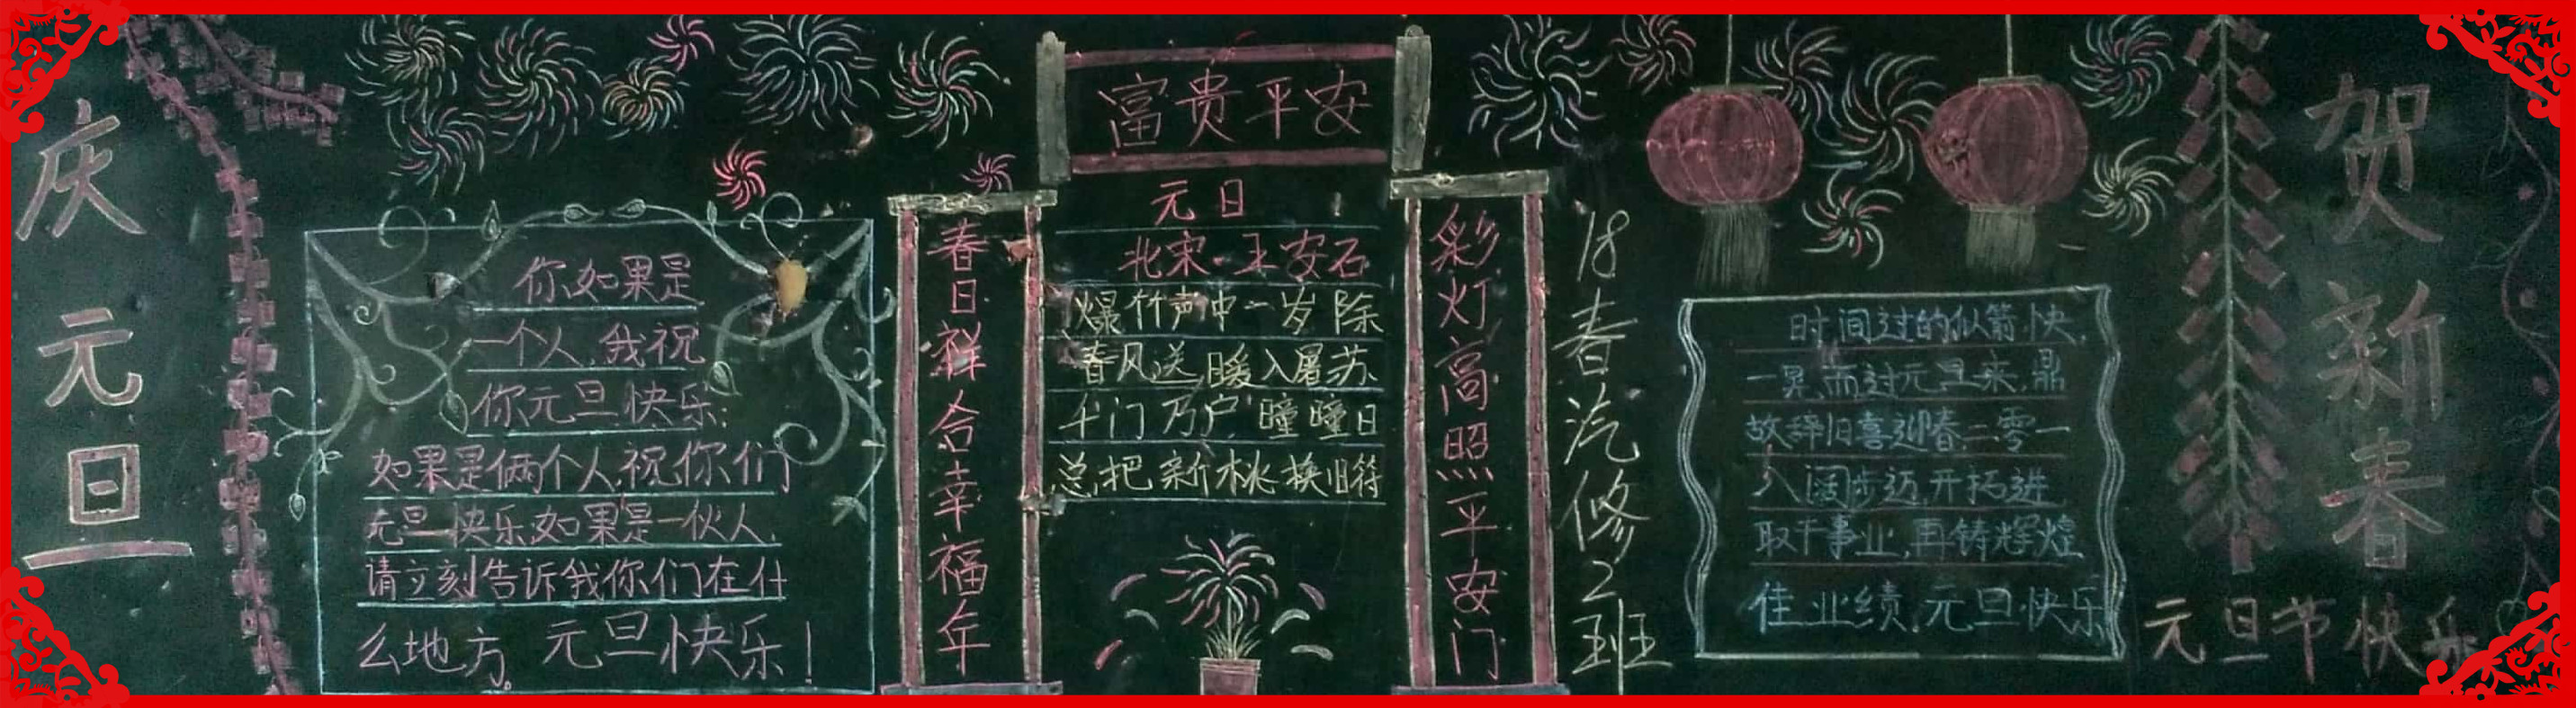 庆元旦
你如果是
一个人,我祝
你元旦快乐;
如果是俩个人,祝你们
元旦快乐,如果是一伙人,
请立刻告诉我你们在什
么地方。元旦快乐!
富贵平安
春日祥合幸福年
元日
北宋·王安石
爆竹声中一岁除
春风送暖入屠苏
千门乃户曈曈日
总把新桃换旧符
彩灯高照平安门
18春汽修2班
时间过的似箭快,
一晃而过元旦来,鼎
故辞旧喜迎春,二零一
八阔步迈,开拓进
取干事业,再铸辉煌
佳业绩,元旦快乐
贺新春
元旦节快乐